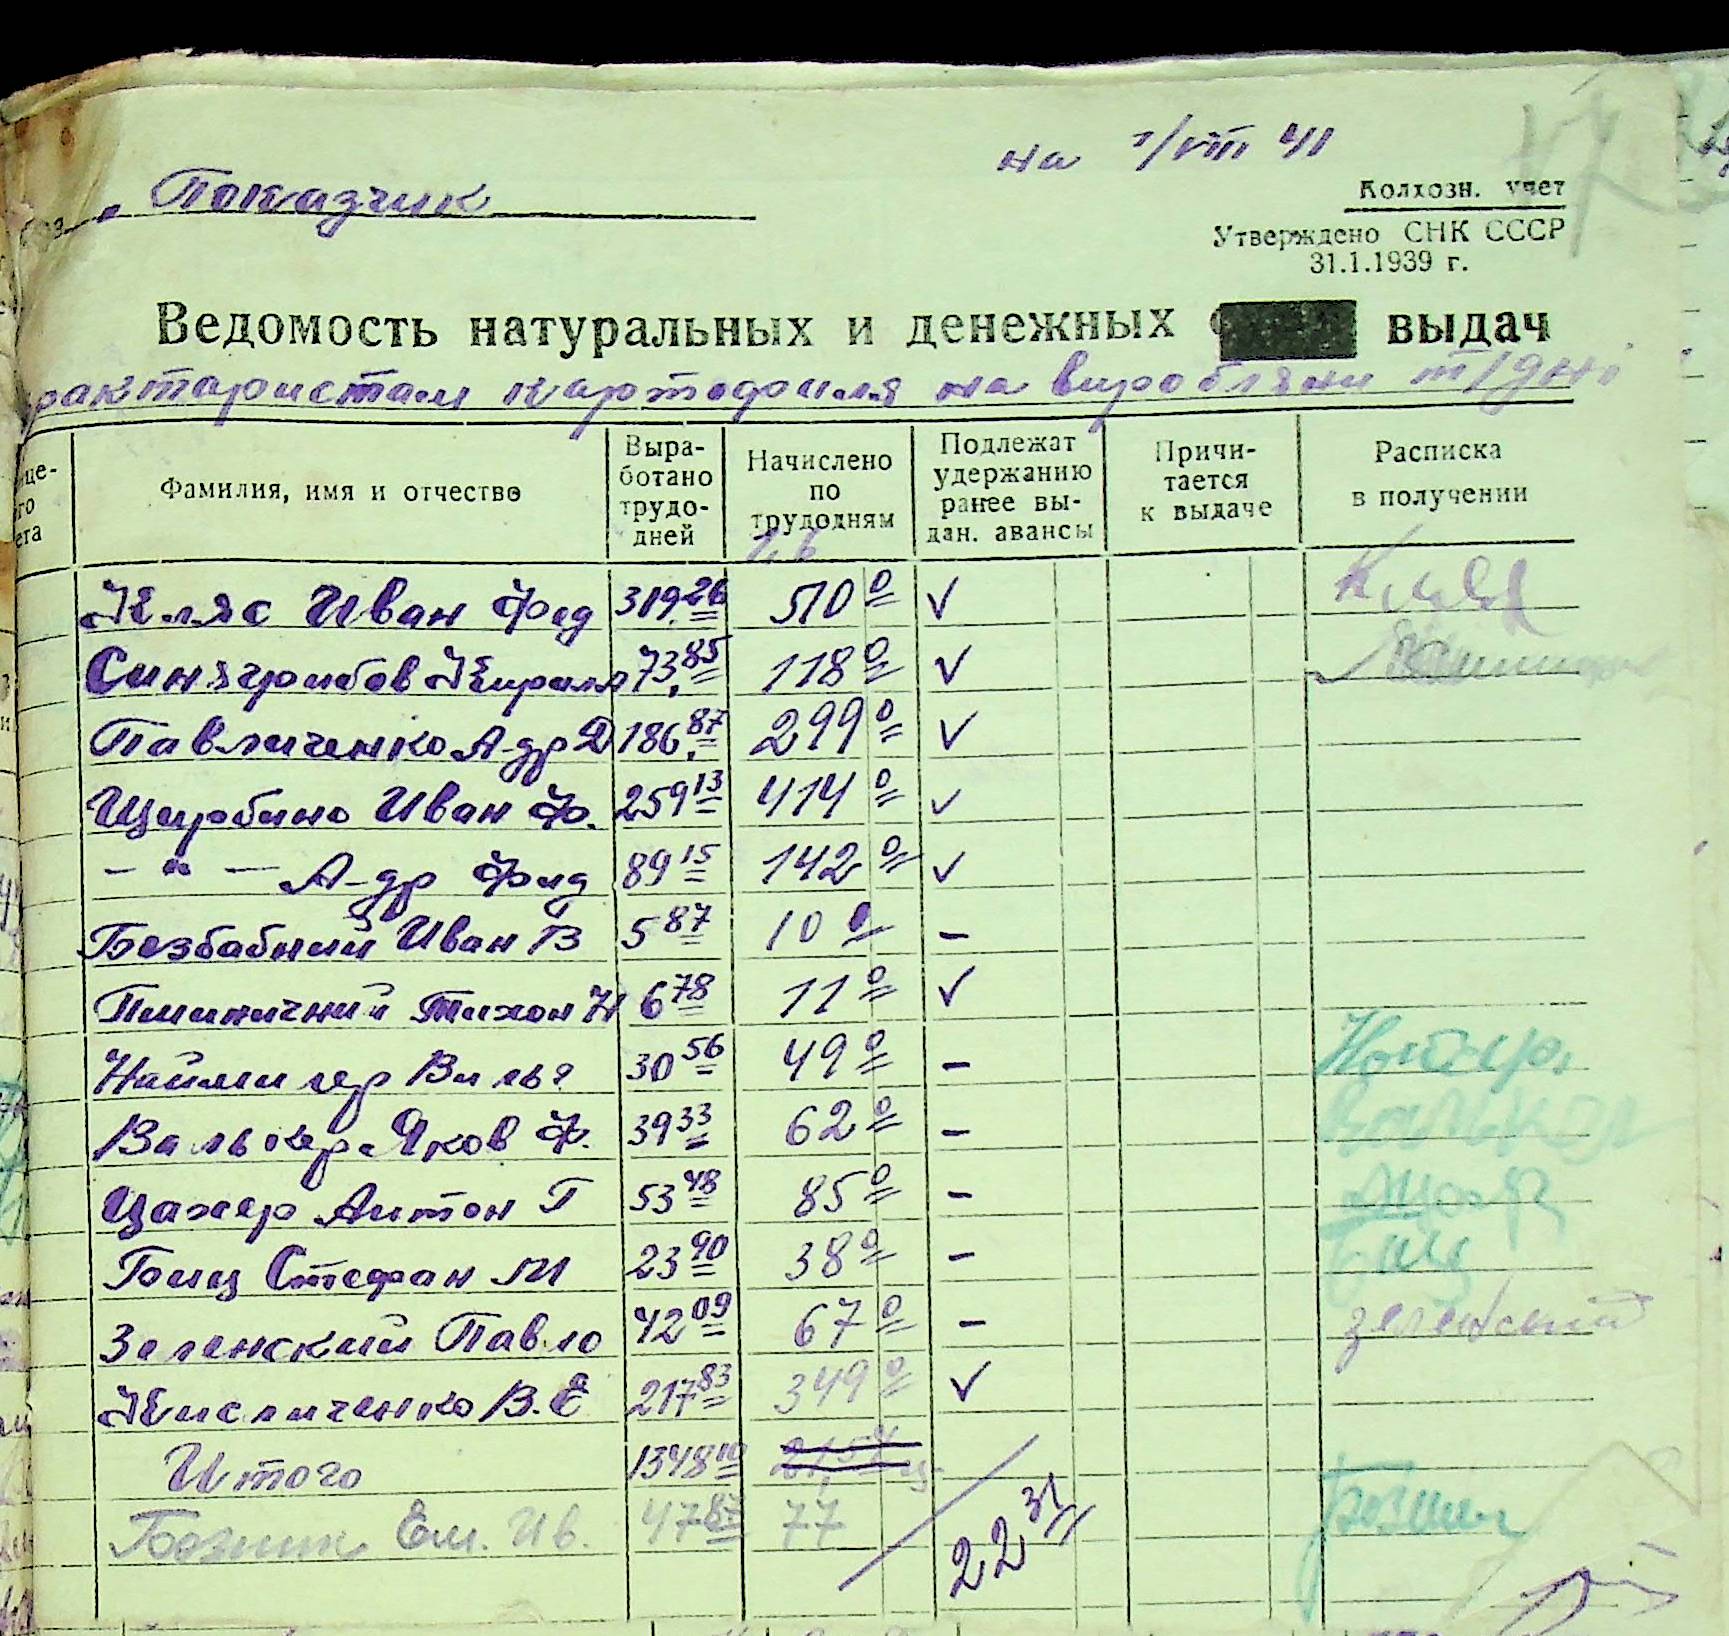 на 1/VIII 41
Показчик
Колхозн. учет
Утверждено СНК СССР
31.1.1939 г.
Ведомость натуральных и денежных выдач
рактористам картофиля на виробляни т/дні
Фамилия, имя и отчество Выра-ботано трудо-дней Начислено по трудодням Подлежат удержанию ранее вы-дан. авансы Причи-тается к выдаче Расписка в получении
1,6
Кляс Иван Фед 319,26 510 0 ✓ Кляс
Синягрибов Кирилл 73,85 118 0 ✓
Павличенко А-др Д 186,87 299 0 ✓
Щирбино Иван Ф. 259 13 414 0 ✓
– " – А-др Фид 89 15 142 0 ✓
Безбабний Иван В 5 87 10 0 –
Пшиничний Тихон Н 6 78 11 0 ✓
Наймиллер Вильг 30 56 49 0 –
Валькер Яков Ф. 39 33 62 0 – Валькер
Цахер Антон Г 53 48 85 0 –
Гоиц Стефан М 23 90 38 0 –
Зеленский Павло 42 09 67 0 – зеленский
Кисличенко В.Е 217 83 349 0 ✓
Итого 1348 10
Безник Ем. Ив. 47 87 77
22 31